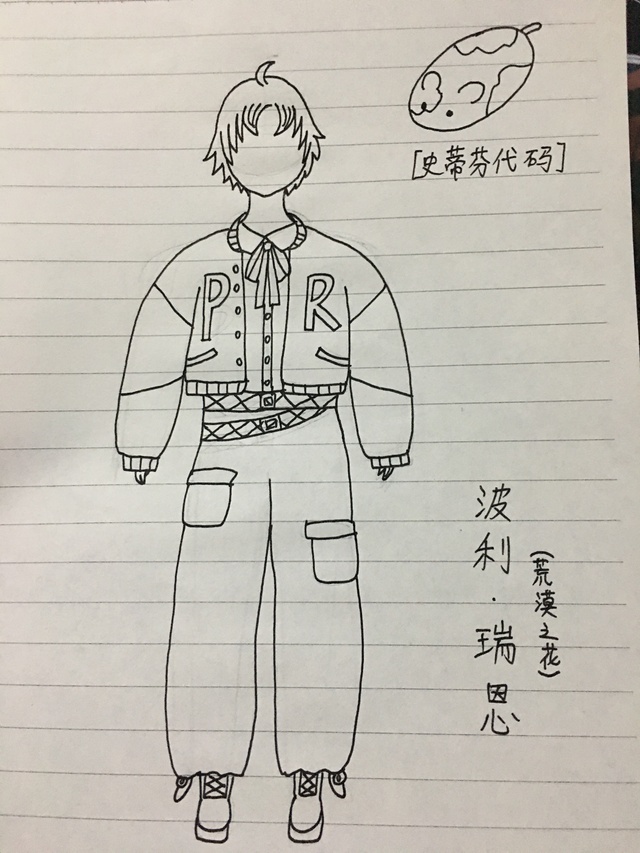 [史蒂芬代码]
P R
波利·瑞恩
(荒漠之花)